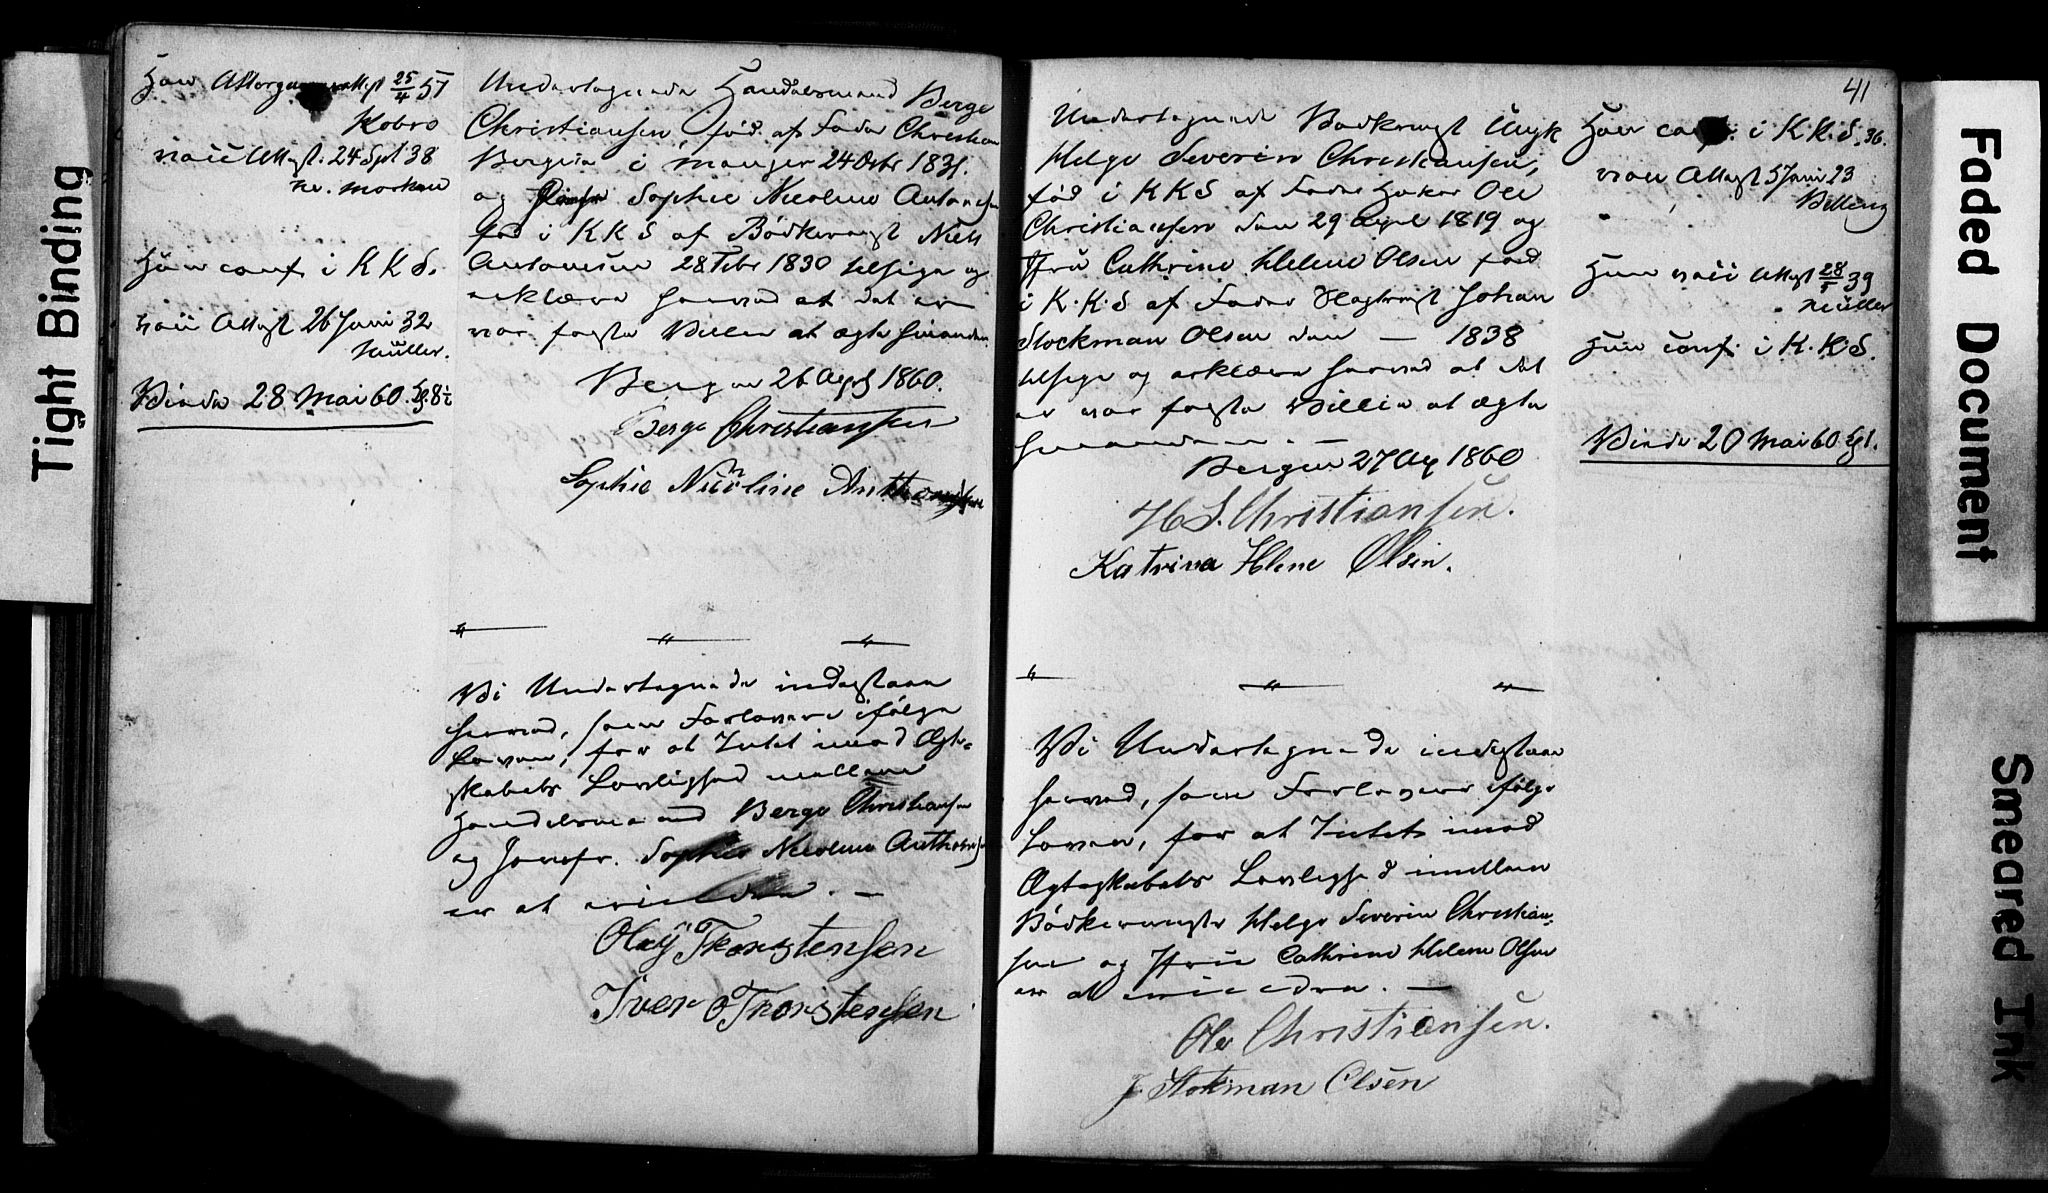 Tight Binding
Han Attest 25/4 57
Kobro
vacc Attest. 24 Spt 38
Hun conf. i K K S.
vacc Attest 26 Juni 32
Müller.
Viede 28 Mai 60. Kl 8½
Undertegnede Handelsmand Berge
Christiansen, fød af Fader Christian
Bergesen i Manger 24 Octbr 1831.
og Pige Sophie Nicoline Antonesen
fød i K K S af Bødkersvgt Niels
Antonesen 28 Febr 1830 tilsige og
erklære herved at det er
vor faste Villie at ægte hinanden
Bergen 26 April 1860.
Berge Christiansen
Sophie Nicoline Anthonesen
" " "
Vi Undertegnede indestaae
herved, som Forlovere ifølge
Loven, for at Intet imod Ægte=
skabets Lovlighed mellem
Handelsmand Berge Christiansen
og Jomfr. Sophie Nicoline Anthonesen
er at erindre. —
Oluf Thorstensen
Iver O Thorstensen
41
Undertegnede Bødkersvgt Ungk
Helge Severin Christiansen,
fød i K K S af Fader Ole
Christiansen den 29 April 1819 og
Jfru Cathrine Helene Olsen fød
i K. K. S af Fader Johan
Stockman Olsen den — 1838
tilsige og erklære herved at det
er vor faste Villie at ægte
hinanden. —
Bergen 27 Ap 1860
H S. Christiansen.
Katrina Helene Olsen.
" " "
Vi Undertegnede indestaae
herved, som Forlovere ifølge
Loven, for at Intet imod
Ægteskabets Lovlighed imellem
Bødkersvgt Helge Severin Christian-
sen og Jfru Cathrine Helene Olsen
er at erindre. —
Ole Christiansen.
J. Stokman Olsen
Han conf. i K K. S. 36.
vacc Attest 5 Juni 23
Hun vacc Attest 28/5 39
Müller
Hun conf. i K. K. S.
Viede 20 Mai 60 Kl 1.
Faded Document
Smeared Ink